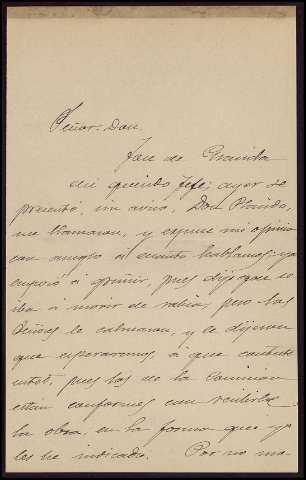 Señor Don
José de
Mi querido Jefe; ayer se
presentó, sin aviso, Don Plácido,
me llamaron, y expuse mi opinión
con arreglo á cuanto hablamos; ya
empezó á gruñir, pues dijo que se
iba á morir de rabia, pero los
Señores le calmaron, y le dijeron
que esperaremos, á que conteste
usted, pues los de la Comision
están conformes con recibirle
la obra, en la forma que ya
les he indicado. Por no mo-